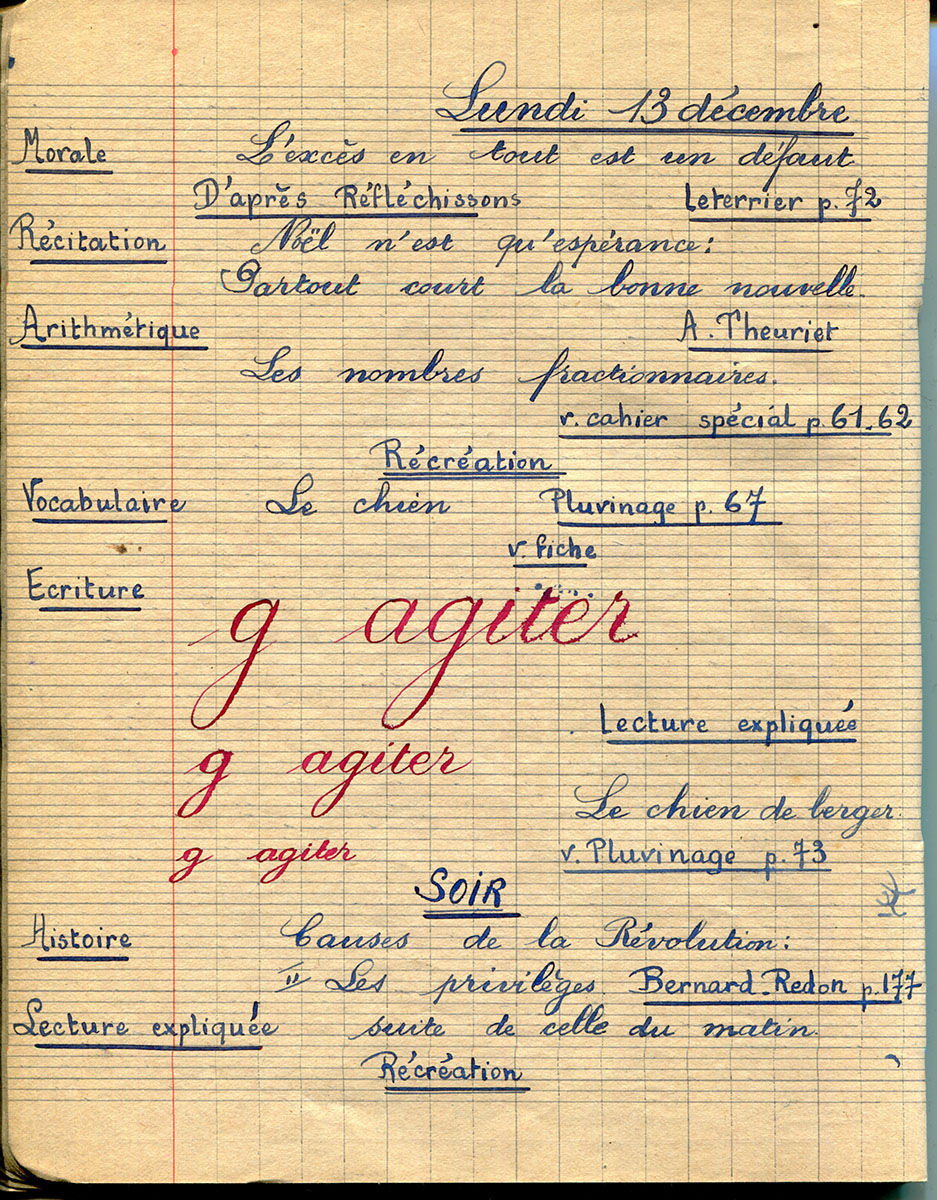 Lundi 13 décembre
Morale L'excès en tout est un défaut
D'après Réfléchissons Leterrier p. 72
Récitation Noël n'est qu'espérance :
Partout court la bonne nouvelle.
Arithmétique A. Theuriet
Les nombres fractionnaires.
v. cahier spécial p. 61.62
Récréation
Vocabulaire Le chien Pluvinage p. 67
v. fiche
Ecriture
g agiter
Lecture expliquée
g agiter
Le chien de berger.
g agiter v. Pluvinage p. 73
SOIR
Histoire Causes de la Révolution :
II Les privilèges. Bernard-Redon p. 177
Lecture expliquée suite de celle du matin.
Récréation